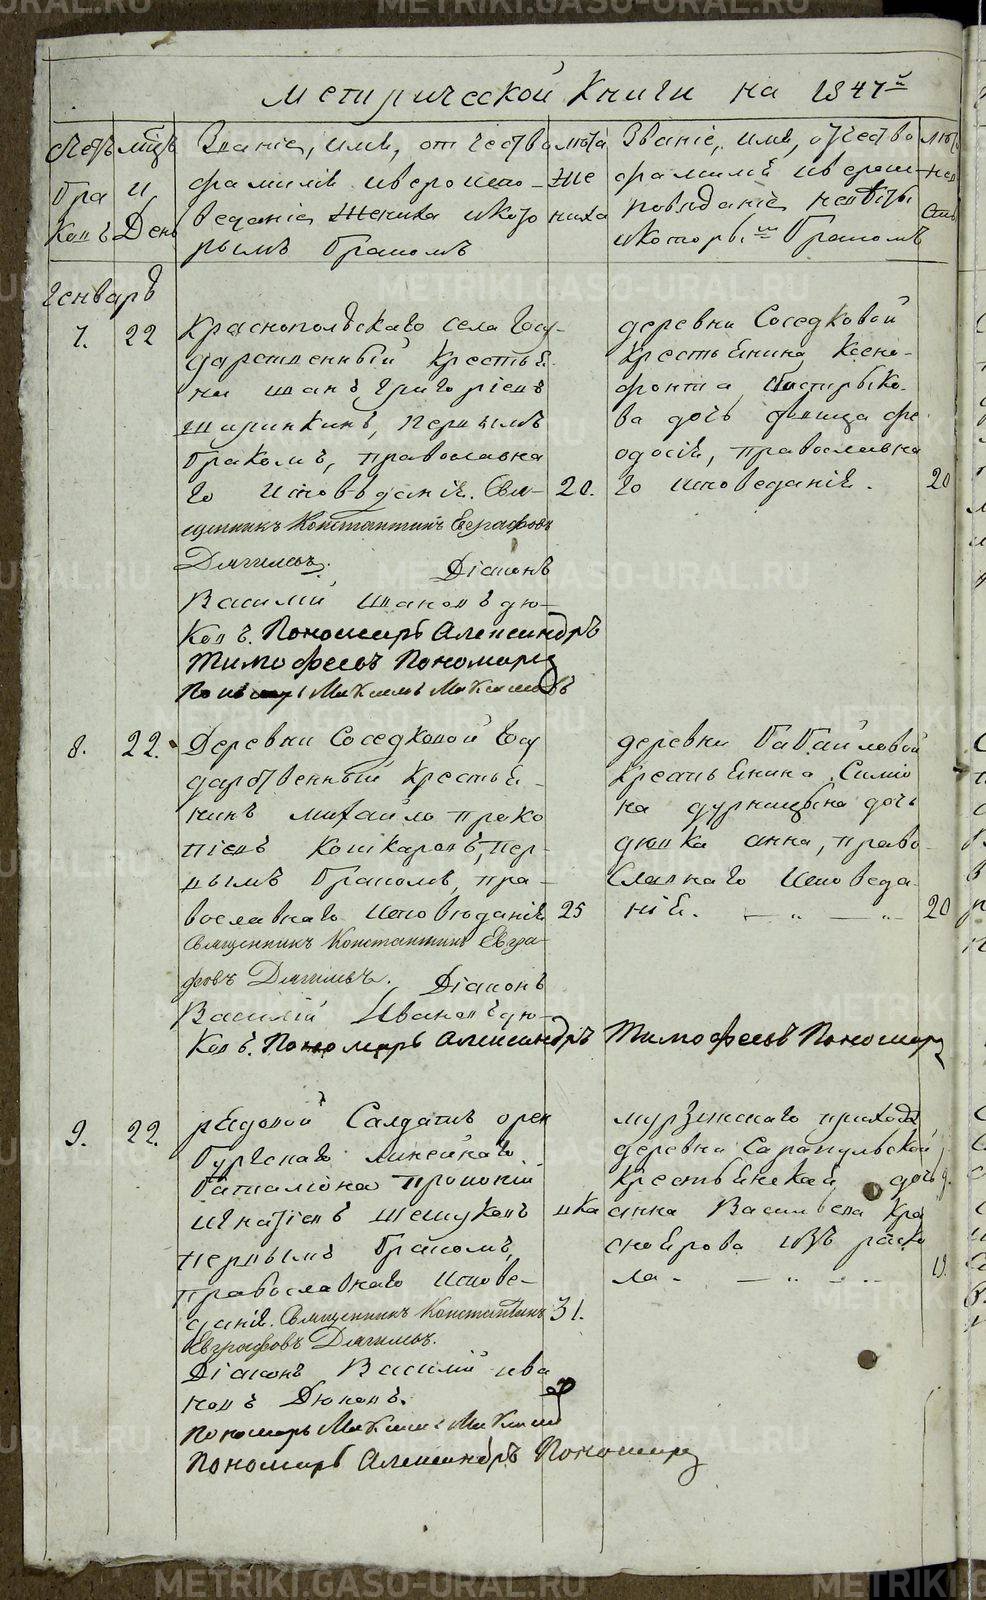 Метрической Книги на 1847й
Счетъ
Бра
ковъ
мѣцъ
и
День
Званіе, имя, отчество
фамилія и вероиспо-
веданіе Жениха и кото
рымъ бракомъ
лѣта
Же
ниха
Званіе, имя, отчество
фамилія и вероис-
поведаніе невѣсты
и которымъ бракомъ
лѣта
нев
Генварь
7.
22
Краснопольскаго села Госу-
дарственный Крестья-
нин Иванъ Григоріевъ
Ширинкинъ, первымъ
бракомъ, православна
го Исповѣданія. Свя-
щенникъ Константинъ Евграфовъ
Дягилевъ.
Діаконъ
Василий Ивановъ Дю-
ковъ. Пономарь Александръ
Тимофеевъ Пономарев
Максимъ Максимовъ
20.
деревни Соседковой
Крестьянина Ксено-
фонта
ва дочь девица Фе
одосія, православна
го Исповеданія.
20
8.
22.
Деревни Соседковой Госу
дарственный Крестья-
нинъ Михайло Проко
піевъ Кошкаровъ, пер-
вымъ бракомъ, пра-
вославнаго Исповюданія
Священникъ Константинъ Евгра-
фовъ Дягилевъ. Діаконъ
Василій Ивановъ Дю-
ковъ. Пономарь Александръ Тимофеевъ Пономарев
25
деревни Бабайловой
Крестьянина Симио
на Дурницына дочь
девка Анна, право
славнаго Исповеда-
нія. — „ — „
20
9.
22.
рядовой Салдатъ Орен
бургскаго линейнаго
батталіона Прокопій
Игнатіевъ Шешуковъ
первымъ бракомъ,
православнаго Испове-
данія. Священникъ Константинъ
Евграфовъ Дягилевъ.
Діаконъ Василій Ива
новъ Дюковъ.
Пономарь Максимъ Максимов
Пономарь Александръ Пономарев
31.
Мурзинскаго прихода
деревни Сарапульской
Крестьянская дочь д.
вка Анна Васильева Кра
из раско
ла. — „ — „
19.